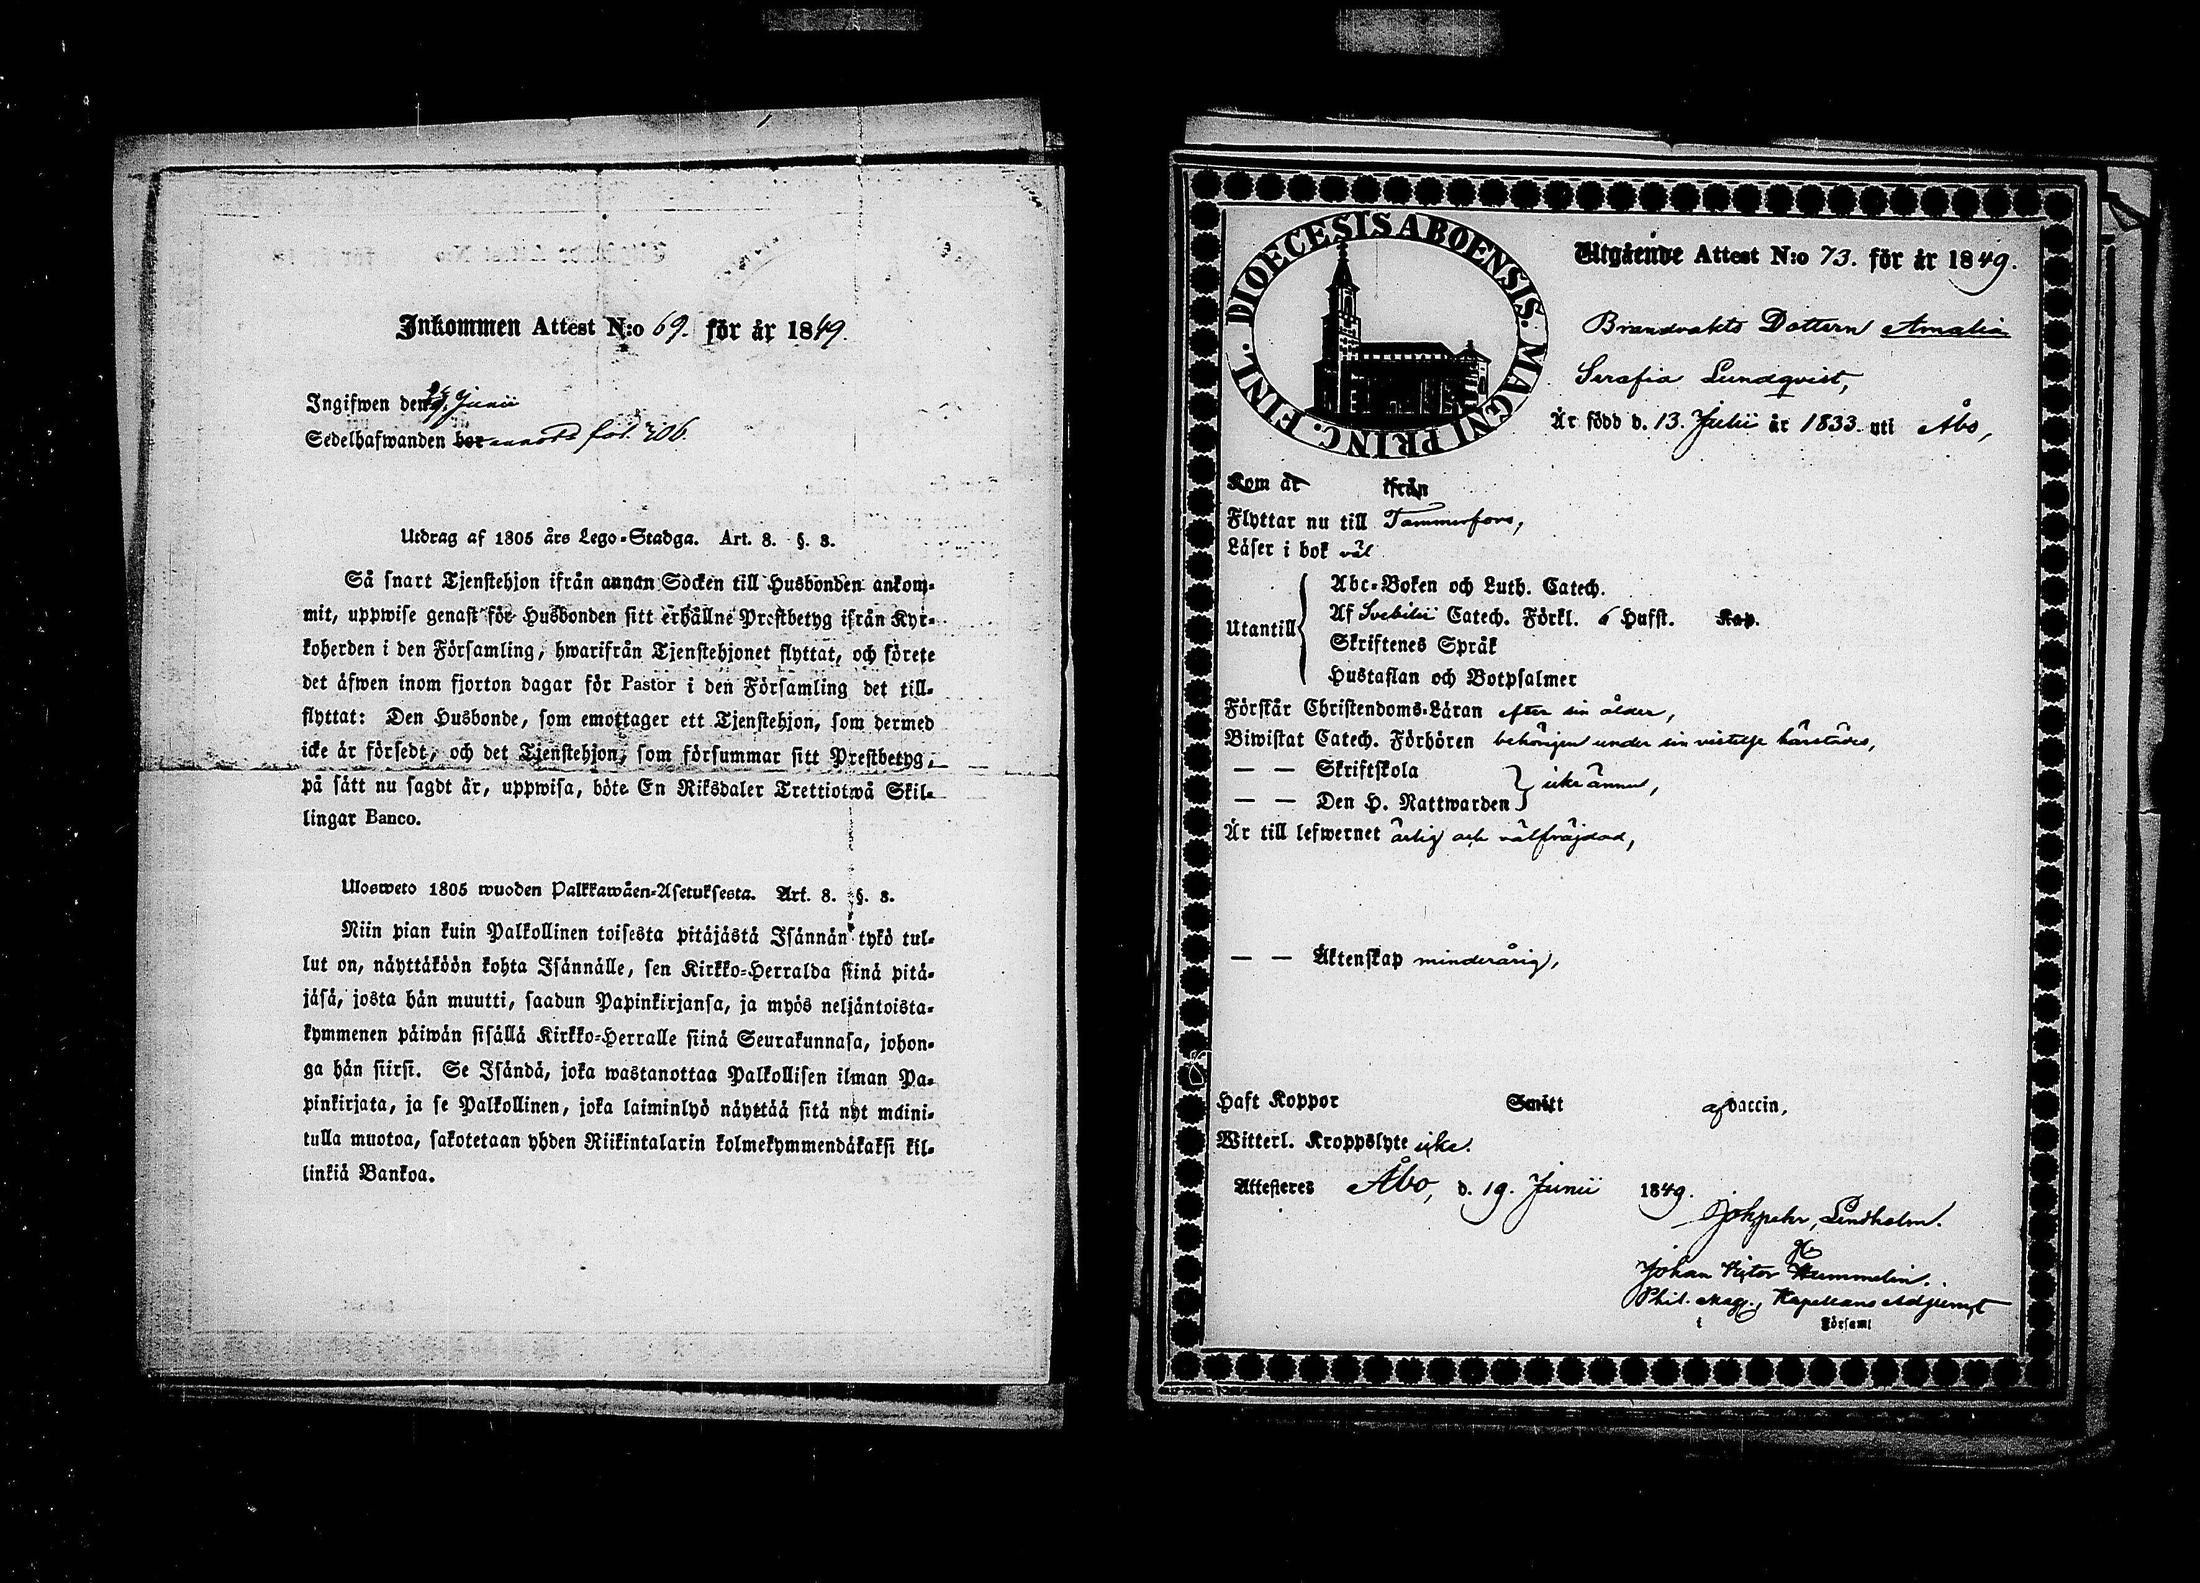 Inkommen Attest N:o 69. för år 1849.
Ingifwen den Junii
Sedelhafwanden bor annot. fol. 706.
Utdrag af 1805 års Lego-Stadga. Art. 8. §. 8.
Så snart Tjenstehjon ifrån annan Socken till Husbonden ankom-
mit, uppwise genast för Husbonden sitt erhållne Prestbetyg ifrån Kyr-
koherden i den Församling, hwarifrån Tjenstehjonet flyttat, och förete
det äfwen inom fjorton dagar för Pastor i den Församling det till-
flyttat: Den Husbonde, som emottager ett Tjenstehjon, som dermed
icke är försedt, och det Tjenstehjon, som försummar sitt Prestbetyg,
på sätt nu sagdt är, uppwisa, böte En Riksdaler Trettiotwå Skil-
lingar Banco.
Ulosweto 1805 wuoden Palkkawäen-Asetuksesta. Art. 8. §. 8.
Niin pian kuin Palkollinen toisesta pitäjästä Isännän tykö tul-
lut on, näyttäköön kohta Isännälle, sen Kirkko-Herralda siinä pitä-
jäsä, josta hän muutti, saadun Papinkirjansa, ja myös neljäntoista-
kymmenen päiwän sisällä Kirkko-Herralle siinä Seurakunnasa, johon-
ga hän siirsi. Se Isändä, joka wastanottaa Palkollisen ilman Pa-
pinkirjata, ja se Palkollinen, joka laiminlyö näyttää sitä nyt maini-
tulla muotoa, sakotetaan yhden Riikintalarin kolmekymmendäkaksi kil-
linkiä Bankoa.
DIOECESIS ABOENSIS. MAGNI PRINC. FINL.
Utgående Attest N:o 73. för år 1849.
Brandvakts Dottern Amalia
Serafia Lundqvist,
Är född d. 13. Julii år 1833 uti Åbo,
Kom år ifrån
Flyttar nu till Tammerfors,
Läser i bok väl
Utantill
Abc-Boken och Luth. Catech.
Af Svebilii Catech. Förkl. 6 Hufst. Kap.
Skriftenes Språk
Hustaflan och Botpsalmer
Förstår Christendoms-Läran efter sin ålder,
Biwistat Catech. Förhören behörigen under sin vistelse härstädes,
— — Skriftskola
icke ännu,
— — Den H. Nattwarden
Är till lefwernet ärlig och välfräjdad,
— — Äktenskap minderårig,
Haft Koppor Smitt af vaccin,
Witterl. Kroppslyte icke.
Attesteres Åbo, d. 19. Junii 1849.
Joh pehr, Lindholm.
Johan Victor Hummelin.
Phil. Mag., Kapellans Adjunct
i Församl